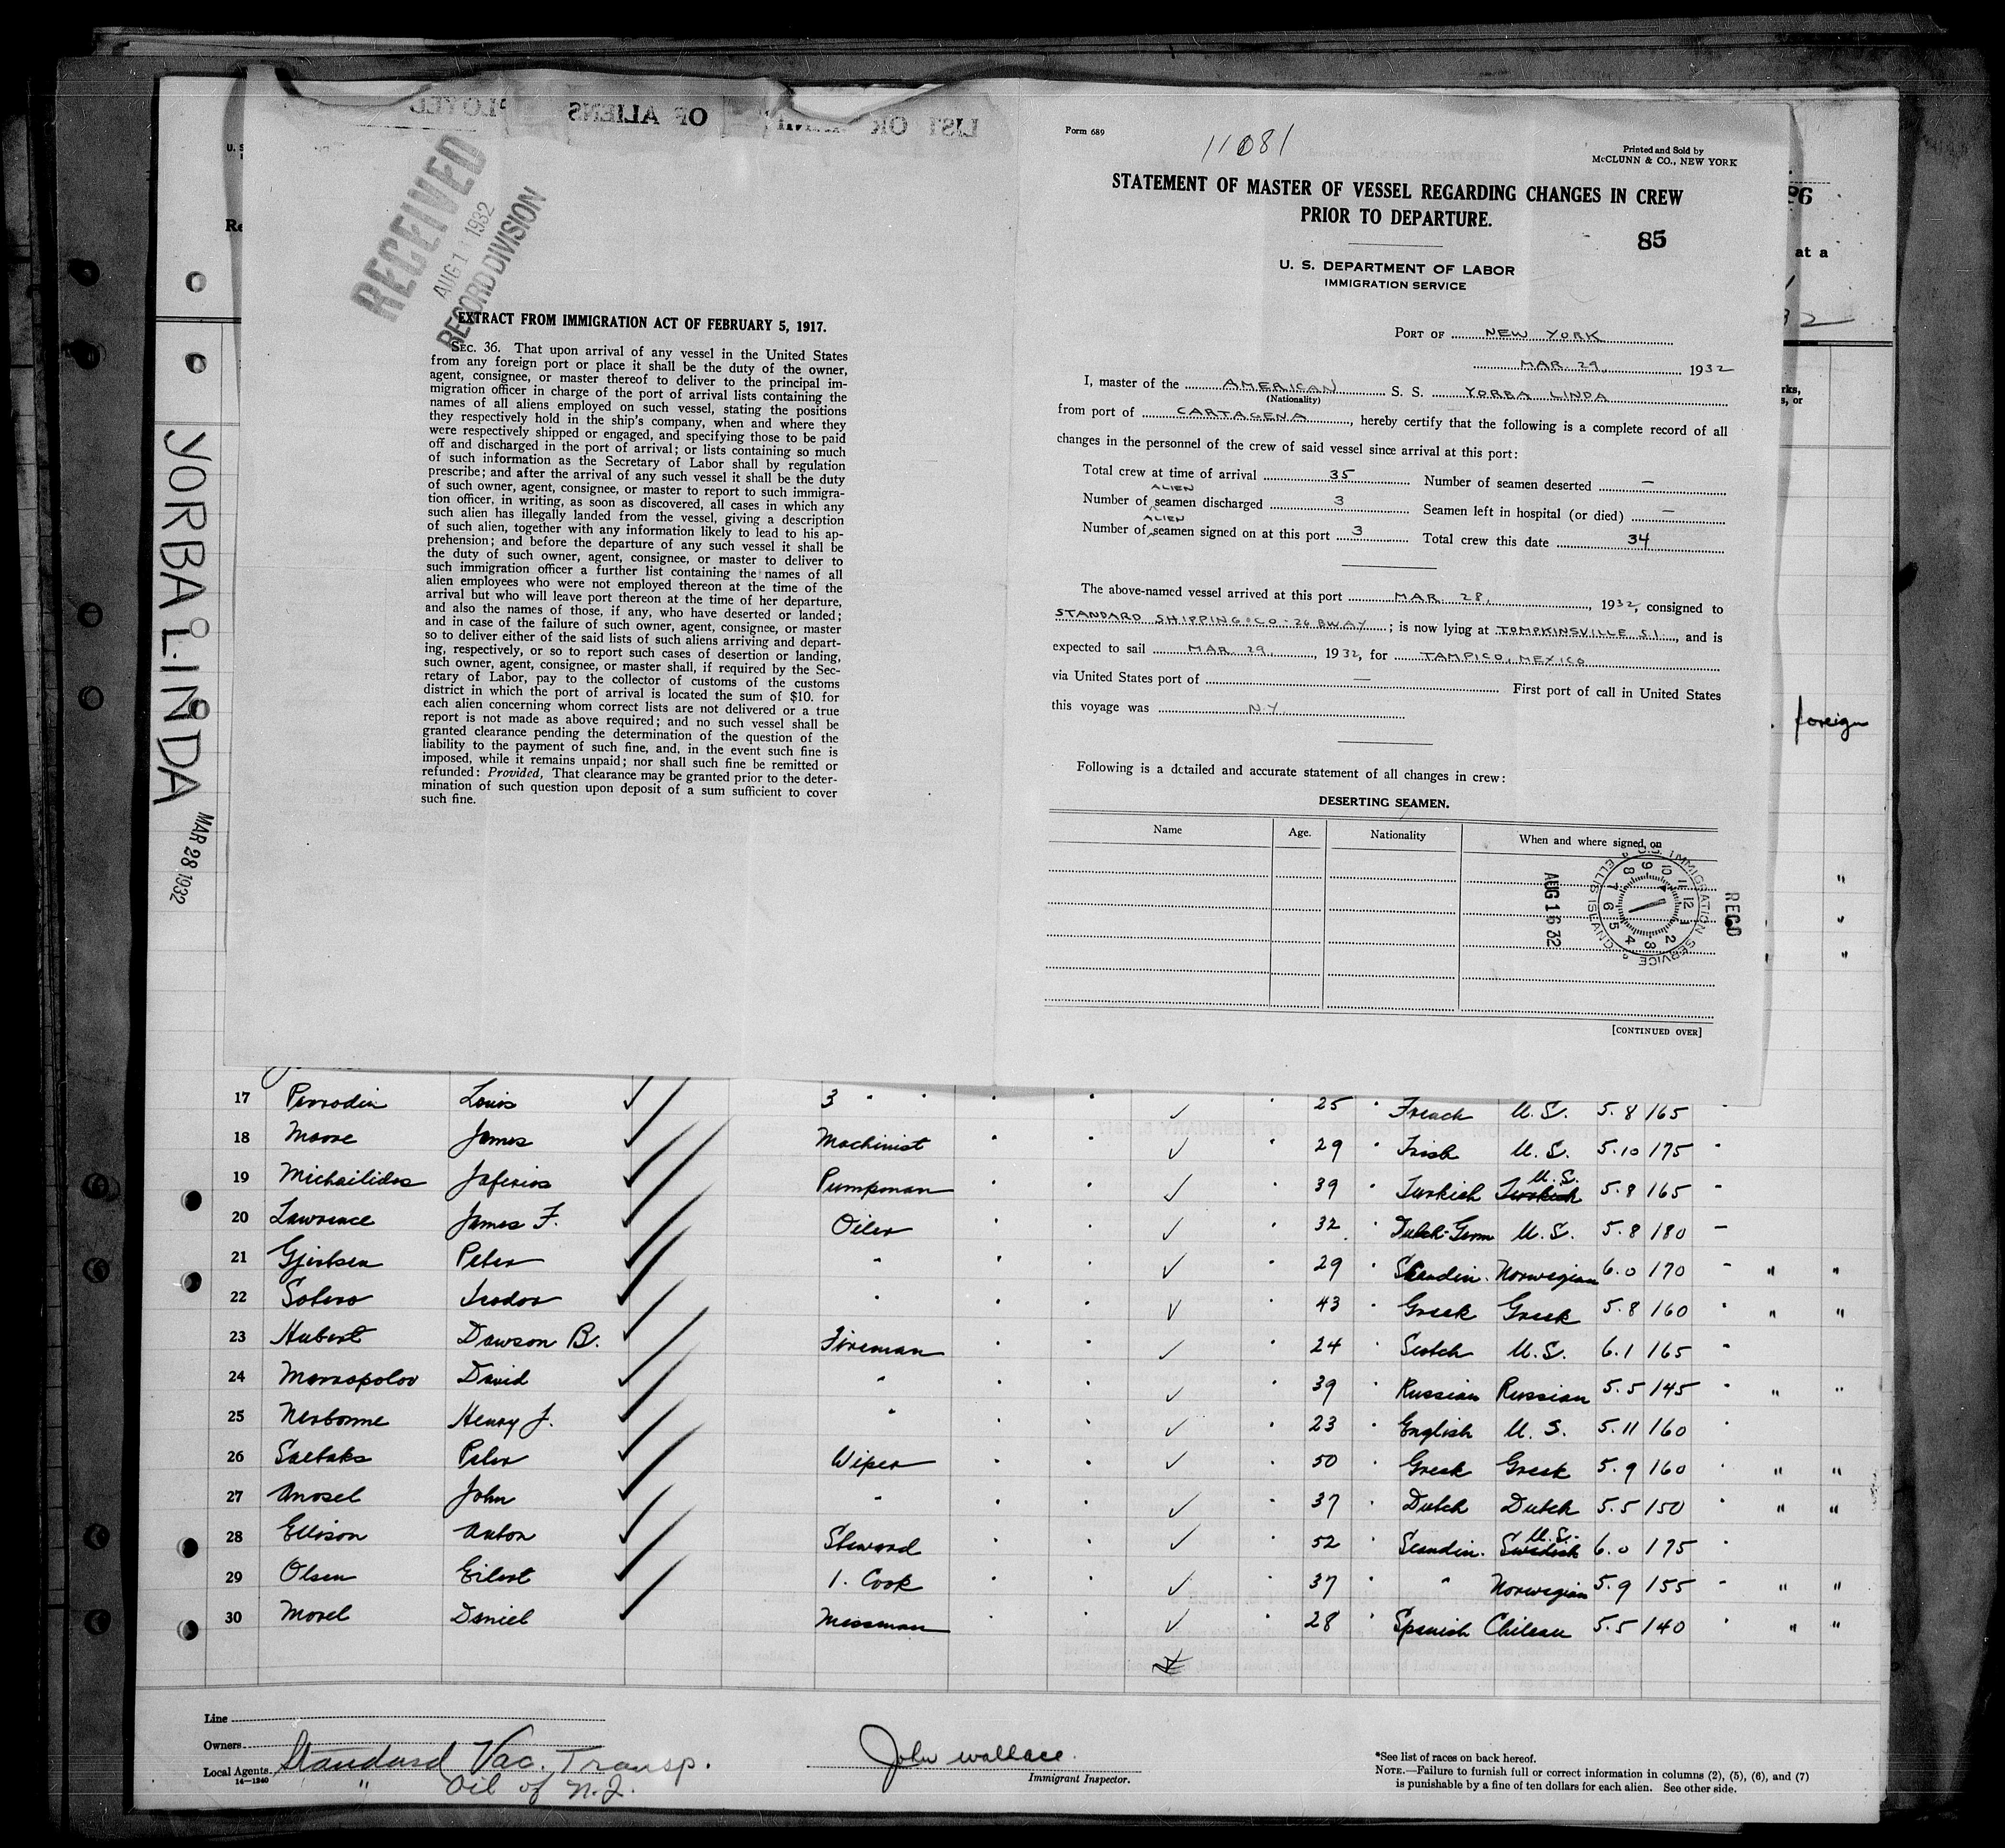 LIST OR
OF ALIENS
PLOYED
U. S
Re
RECEIVED
AUG 1 1 1932
RECORD DIVISION
EXTRACT FROM IMMIGRATION ACT OF FEBRUARY 5, 1917.
SEC. 36. That upon arrival of any vessel in the United States
from any foreign port or place it shall be the duty of the owner,
agent, consignee, or master thereof to deliver to the principal im-
migration officer in charge of the port of arrival lists containing the
names of all aliens employed on such vessel, stating the positions
they respectively hold in the ship's company, when and where they
were respectively shipped or engaged, and specifying those to be paid
off and discharged in the port of arrival; or lists containing so much
of such information as the Secretary of Labor shall by regulation
prescribe; and after the arrival of any such vessel it shall be the duty
of such owner, agent, consignee, or master to report to such immigra-
tion officer, in writing, as soon as discovered, all cases in which any
such alien has illegally landed from the vessel, giving a description
of such alien, together with any information likely to lead to his ap-
prehension; and before the departure of any such vessel it shall be
the duty of such owner, agent, consignee, or master to deliver to
such immigration officer a further list containing the names of all
alien employees who were not employed thereon at the time of the
arrival but who will leave port thereon at the time of her departure,
and also the names of those, if any, who have deserted or landed;
and in case of the failure of such owner, agent, consignee, or master
so to deliver either of the said lists of such aliens arriving and depart-
ing, respectively, or so to report such cases of desertion or landing,
such owner, agent, consignee, or master shall, if required by the Sec-
retary of Labor, pay to the collector of customs of the customs
district in which the port of arrival is located the sum of $10. for
each alien concerning whom correct lists are not delivered or a true
report is not made as above required; and no such vessel shall be
granted clearance pending the determination of the question of the
liability to the payment of such fine, and, in the event such fine is
imposed, while it remains unpaid; nor shall such fine be remitted or
refunded: Provided, That clearance may be granted prior to the deter-
mination of such question upon deposit of a sum sufficient to cover
such fine.
YORBA LINDA
MAR 28 1932
Form 689
11081
Printed and Sold by
McCLUNN & CO., NEW YORK
STATEMENT OF MASTER OF VESSEL REGARDING CHANGES IN CREW
PRIOR TO DEPARTURE.
85
U. S. DEPARTMENT OF LABOR
IMMIGRATION SERVICE
PORT OF NEW YORK
MAR 29, 1932
I, master of the AMERICAN S. S. YORBA LINDA
(Nationality)
from port of CARTAGENA, hereby certify that the following is a complete record of all
changes in the personnel of the crew of said vessel since arrival at this port:
Total crew at time of arrival 35 Number of seamen deserted —
Number of ALIEN seamen discharged 3 Seamen left in hospital (or died) —
Number of ALIEN seamen signed on at this port 3 Total crew this date 34
The above-named vessel arrived at this port MAR. 28, 1932, consigned to
STANDARD SHIPPING CO - 26 BWAY; is now lying at TOMPKINSVILLE S.I., and is
expected to sail MAR. 29, 1932, for TAMPICO, MEXICO
via United States port of — First port of call in United States
this voyage was N.Y.
Following is a detailed and accurate statement of all changes in crew:
DESERTING SEAMEN.
Name Age. Nationality When and where signed on
REC'D
AUG 16 32
U.S. IMMIGRATION SERVICE ELLIS ISLAND
[CONTINUED OVER]
at a
foreign
17 Perrodin Louis 3 " " 25 French U.S. 5.8 165
18 Moore James Machinist 29 Irish U.S. 5.10 175
19 Michailidos Jaferios Pumpman 39 Turkish Turkish U.S. 5.8 165
20 Lawrence James F. Oiler 32 Dutch-Germ U.S. 5.8 180
21 Gjertsen Peter " 29 Scandin. Norwegian 6.0 170 " "
22 Sotero Isodor " 43 Greek Greek 5.8 160 " "
23 Hubert Dawson B. Fireman 24 Scotch U.S. 6.1 165
24 Moraopolov David " 39 Russian Russian 5.5 145 " "
25 Nerbonne Henry J. " 23 English U.S. 5.11 160
26 Saetaks Peter Wiper 50 Greek Greek 5.9 160 " "
27 Anosel John " 37 Dutch Dutch 5.5 150 " "
28 Ellison Anton Steward 52 Scandin. Swedish U.S. 6.0 175
29 Olsen Eilert 1. Cook 37 " Norwegian 5.9 155 " "
30 Morel Daniel Messman 28 Spanish Chilean 5.5 140 " "
Line
Owners Standard Vac. Transp.
Local Agents " Oil of N.J.
14—1240
John Wallace
Immigrant Inspector.
*See list of races on back hereof.
NOTE.—Failure to furnish full or correct information in columns (2), (5), (6), and (7)
is punishable by a fine of ten dollars for each alien. See other side.